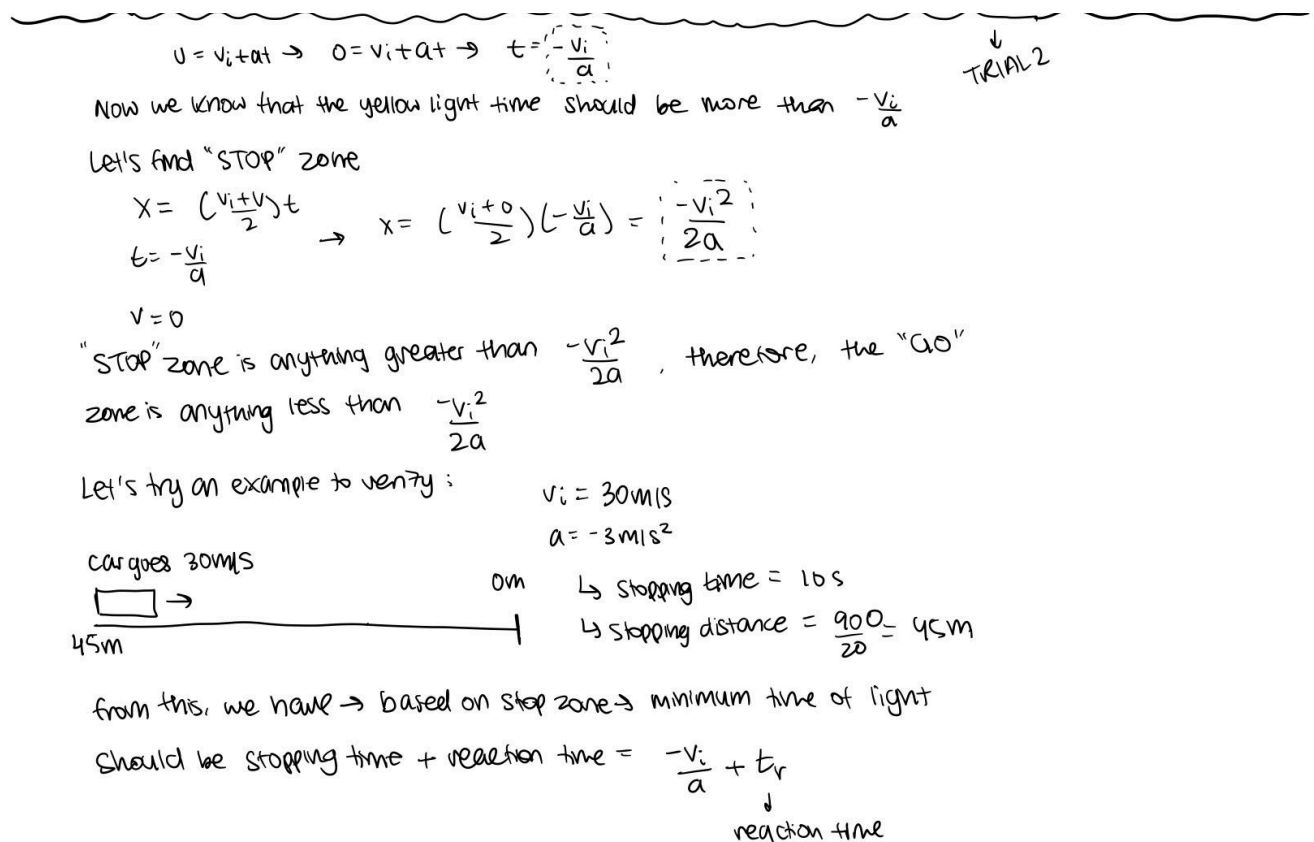 v = vi + at → 0 = vi + at → t = -vi/a
↓
TRIAL 2
Now we know that the yellow light time should be more than -vi/a
Let's find "STOP" zone
x = (vi+v/2)t
→ x = (vi+0/2)(-vi/a) = -vi²/2a
t = -vi/a
v = 0
"STOP" zone is anything greater than -vi²/2a, therefore, the "GO"
zone is anything less than -vi²/2a
Let's try an example to verify:
vi = 30m/s
a = -3m/s²
car goes 30m/s
→
0m
↳ stopping time = 10s
45m
↳ stopping distance = 900/20 = 45m
from this, we have → based on stop zone → minimum time of light
should be stopping time + reaction time = -vi/a + tr
↓
reaction time